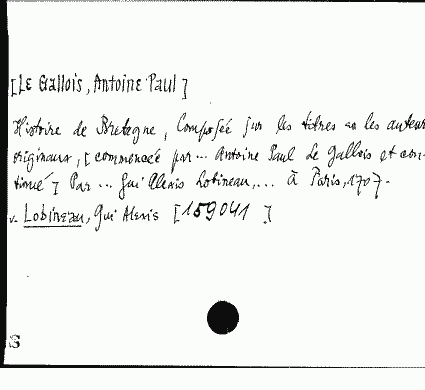 [Le Gallois, Antoine Paul]
Histoire de Bretagne, Composée sur les titres & les auteurs
originaux, [commencée par... Antoine Paul Le Gallois et con-
tinué] Par... Gui Alexis Lobineau,... à Paris, 1707.-
v. Lobineau, Gui Alexis [159041]